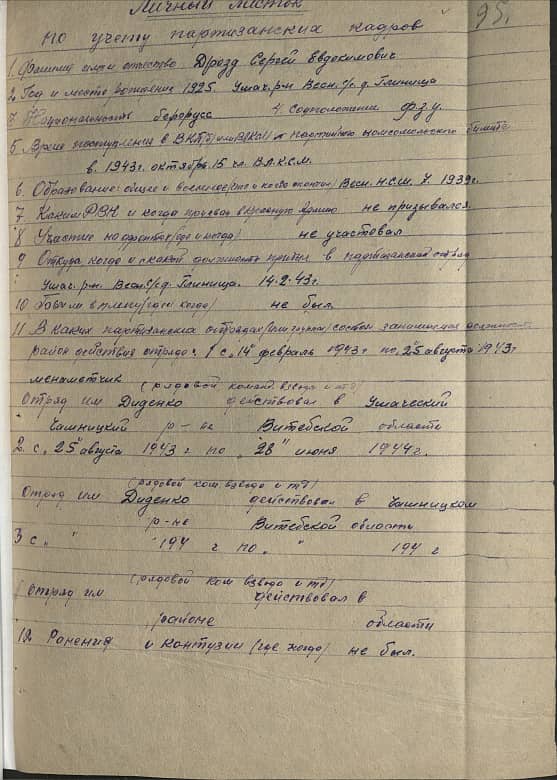 Личный листок
95.
по учету партизанских кадров
1. Фамилия имя отчество Дрозд Сергей Евдокимович
2. Год и место рождения 1925 Ушач. р-н Весн. с/с д. Глиница
3. Национальность белорусс 4. Соцположение ф.з.у.
5. Время поступления в ВКП(б) или ВЛКСМ № партийного комсомольского билета
в 1943г. октябрь 15 чл. ВЛКСМ.
6. Образование: общее и военное (что и когда окончил) Весн. н.с.ш. 7. 1939г.
7. Каким РВК и когда призван в Красную Армию не призывался
8 Участие на фронтах (где и когда) не участовал
9 Откуда когда и с какой должности прибыл в партизанский отряд
Ушач. р-н. Весн. с/с д. Глиница. 14-2-43г.
10 Был ли в плену (где и когда) не был.
11. В каких партизанских отрядах состоял занимаемая должность
район действия отряда: 1 с "14" февраль 1943г по "25" августа 1943г
(рядовой команд. взвода и тд)
Отряд им Диденко действовал в Ушачский
Чашницкий р-не Витебской области
2. с "25" августа 1943 г по "28" июня 1944 г.
(рядовой ком. взвода и тд)
Отряд им Диденко действовал в Чашницком
р-не Витебской область
3 с " " 194 г по " " 194 г
(рядовой ком взвода и тд)
Отряд им действовал в
районе области
12 Ранения и контузии (где когда) не был.